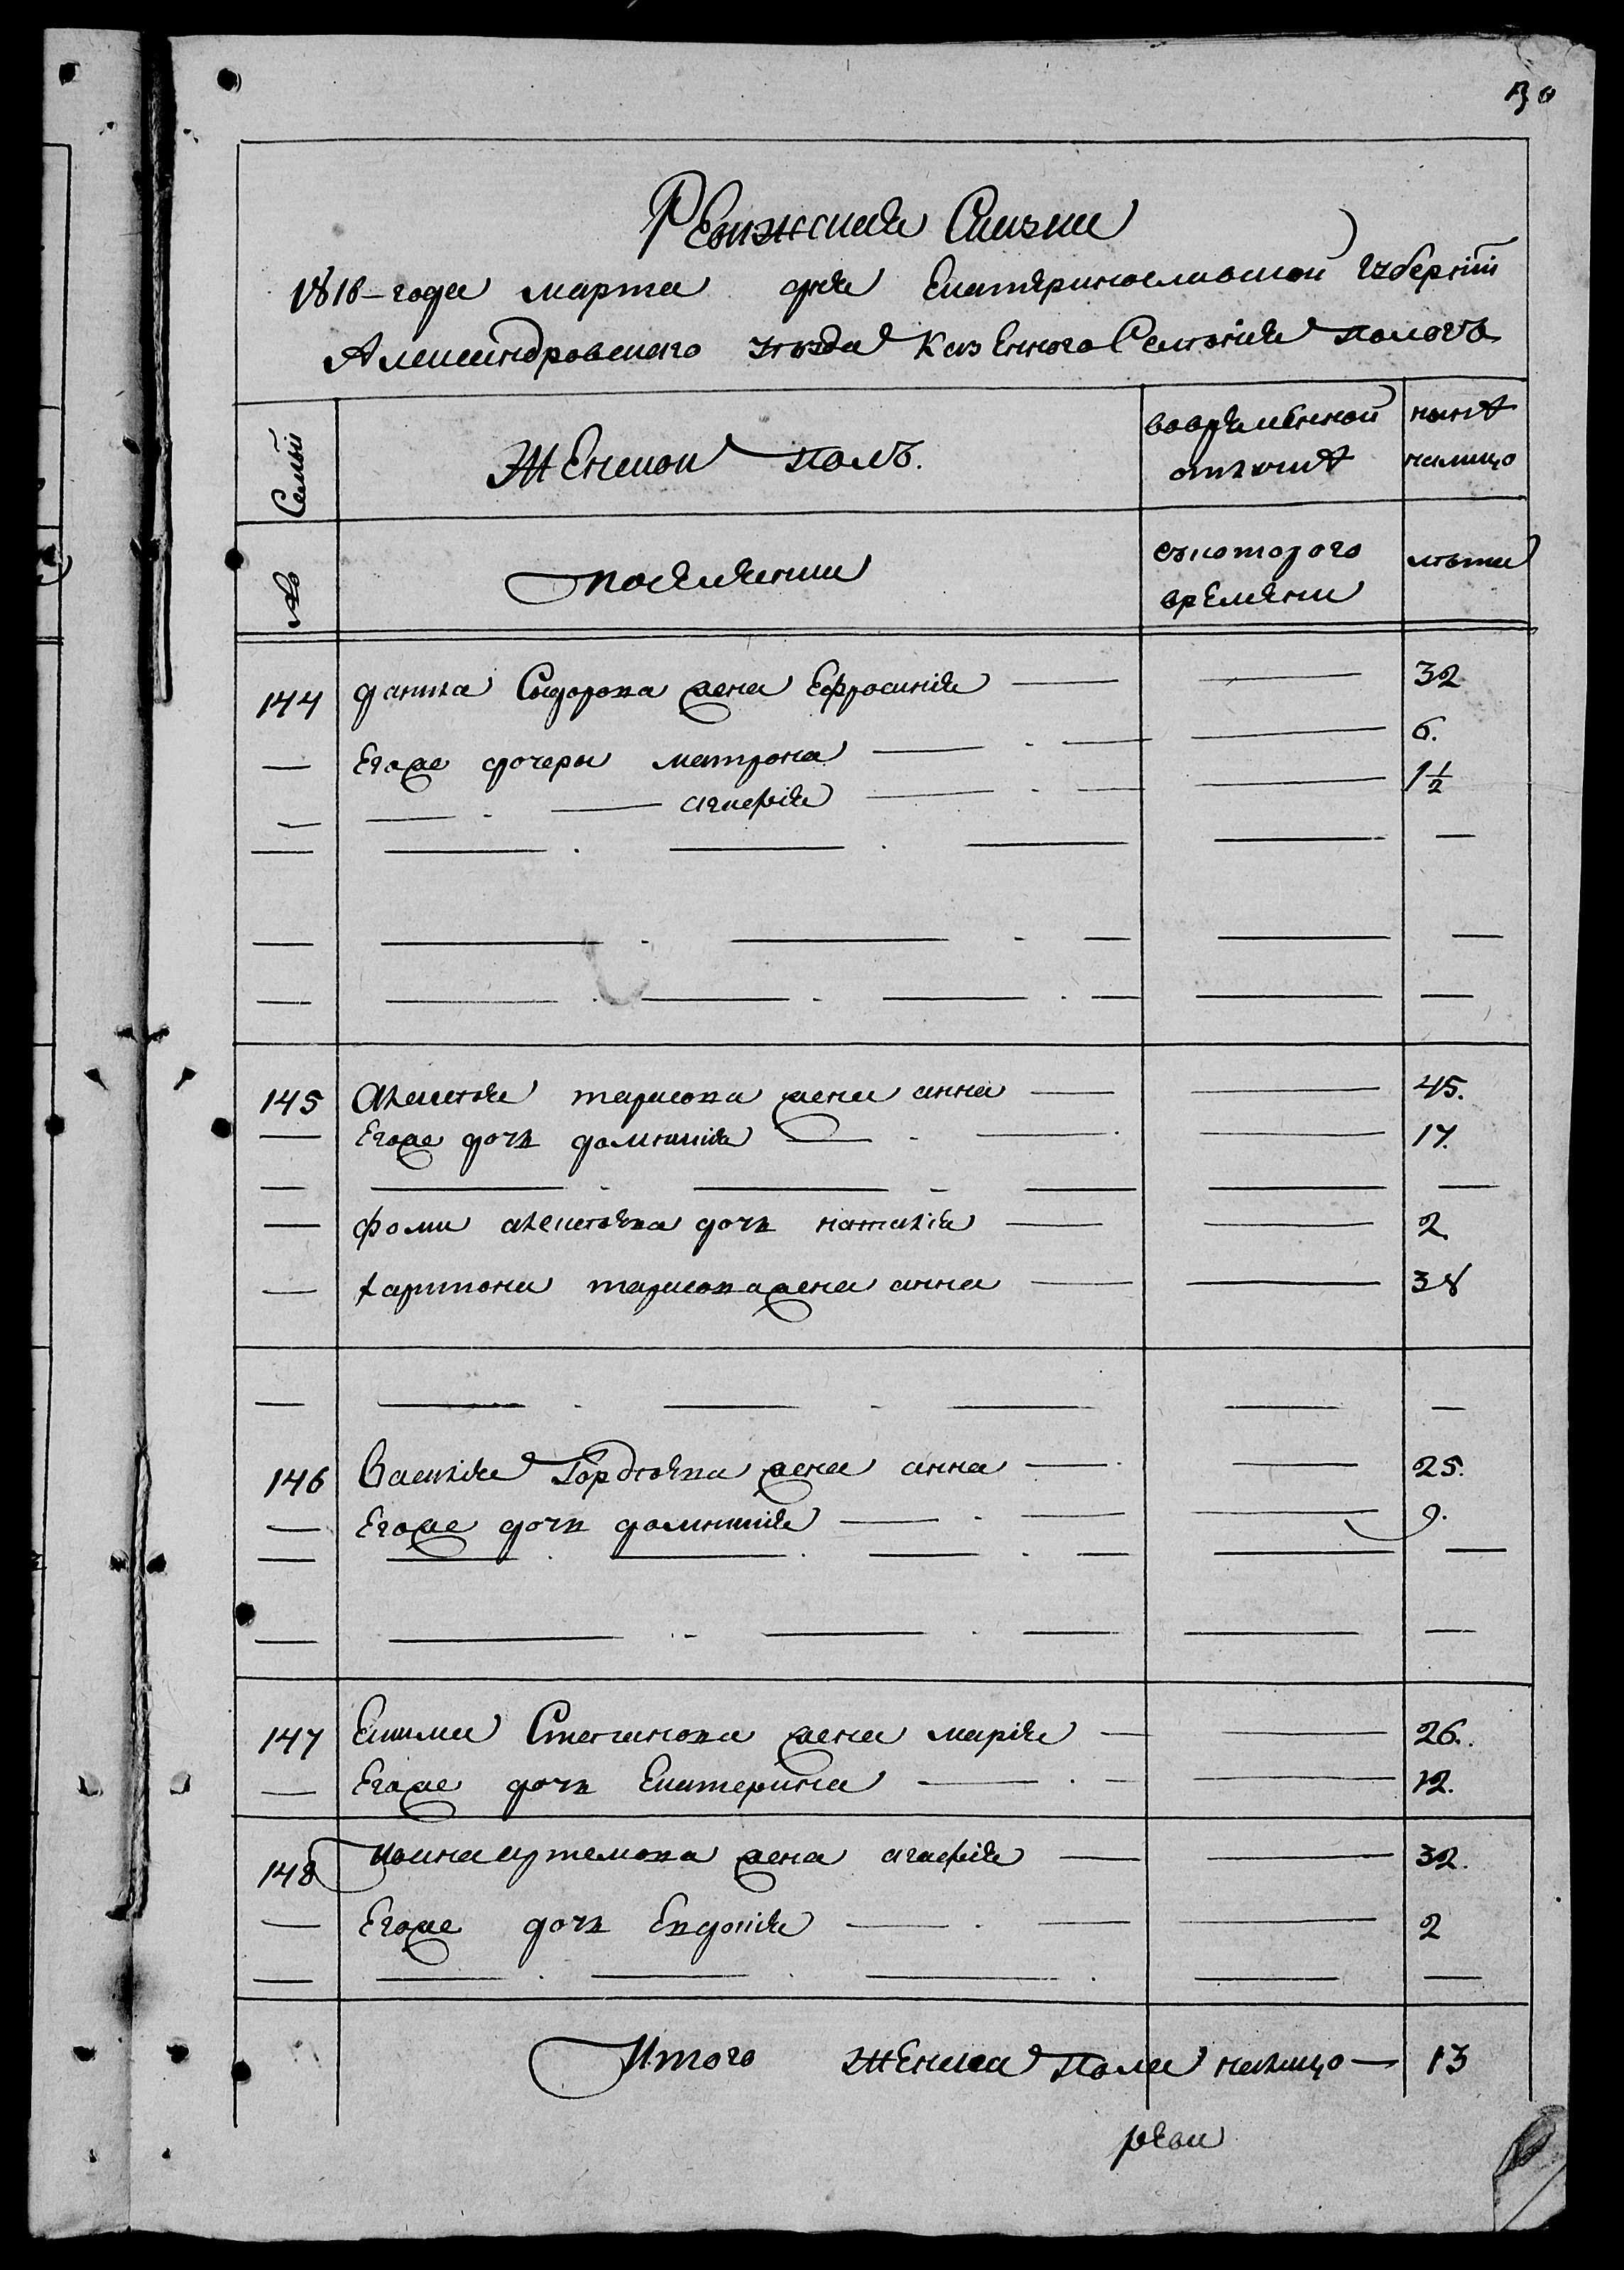 Ревижская Сказка
1816 года марта дня Екатяринославской губернiи
Александровского уѣзда Казенного Селѣния пологъ
Семьи
Женскои полъ.
вовремѣнной
отлучкѣ
нынѣ
налицо
№
поселянки
скоторого
времяни
лѣта
144 данила Сидорова жена Ефросиния — — 32
— Егоже дочери матрона — — 6.
— — агафия — — 1 1/2
145 алексѣя тарасова жена анна — — 45.
— Егоже дочъ домникия — — 17.
— фоми алексѣева дочъ наталия — — 2.
— харитона тарасова жена анна — — 38
146 Василия Гордѣева жена анна — — 25.
— Егоже дочъ домникия — — 9.
147 Екима Степанова жена мария — — 26.
— Егоже дочъ Екатерина — — 12.
148 Ивана артемова жена агафия — — 32.
— Егоже дочъ Евдокия — — 2
Итого женска пола налицо — 13